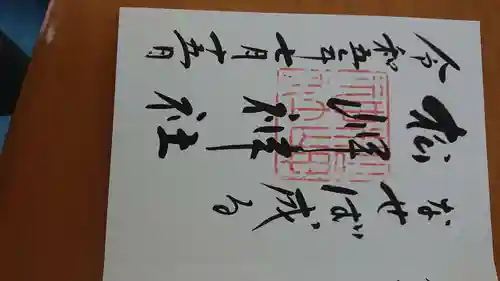 なせば成る
松岬神社
令和五年七月十五日